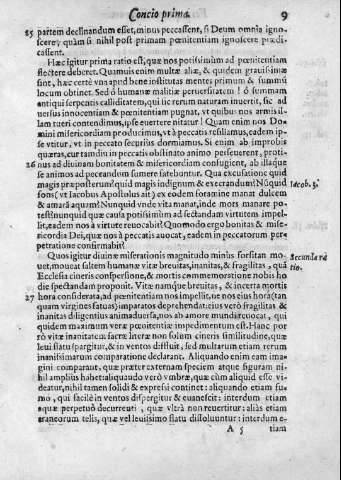 Concio prima. 9
25 partem declinandum esset, minus peccassent, si Deum omnia igno-
scere, quàm si nihil post primam pœnitentiam ignoscere prædi-
cassent.
Hæc igitur prima ratio est, quæ nos potissimùm ad pœnitentiam
flectere deberet. Quamuis enim multæ aliæ, & quidem grauissimæ
sint, hæc certè vna apud bene institutas mentes primum & summũ
locum obtinet. Sed ô humanæ malitiæ peruersitatem! ô summam
antiqui serpentis calliditatem, qui sic rerum naturam inuertit, sic ad
versus innocentiam & pœnitentiam pugnat, vt quibus nos armis il-
lam tueri contendimus, ipse euertere nitatur! Quam enim nos Do-
mini misericordiam producimus, vt à peccatis resiliamus, eadem ip-
se vtitur, vt in peccato securiùs dormiamus. Si enim ab improbis
quæras, cur tamdiu in peccatis obstinato animo perseuerent, proti-
26 nus ad diuinam bonitatem & misericordiam confugient, ab illaque
se animos ad peccandum sumere fatebuntur. Qua excusatione quid
magis præposterum? quid magis indignum & execrandum? Nũquid
fons (vt Iacobus Apostolus ait) ex eodem foramine manat dulcem Iacob. 3.
& amarã aquam? Nunquid vnde vita manat, inde mors manare po-
test? nunquid quæ causa potissimùm ad sectandam virtutem impel-
lit, eadem nos à virtute reuocabit? Quomodo ergo bonitas & mise-
ricordia Dei, quæ nos à peccatis auocat, eadem in peccatorum per-
petratione confirmabit?
Quos igitur diuinæ miserationis magnitudo minùs forsitan mo- Secunda ra
uet, moueat saltem humanæ vitæ breuitas, inanitas, & fragilitas, quã tio.
Ecclesia cineris conspersione, & mortis commemoratione nobis ho
die spectandam proponit. Vitæ namque breuitas, & incerta mortis
27 hora considerata, ad pœnitentiam nos impellit, ne nos eius hora (tan
quam virgines fatuas) imparatos deprehendat: eius verò fragilitas &
inanitas diligentius animaduersa, nos ab amore mundi reuocat, qui
quidem maximum veræ pœnitentiæ impedimentum est. Hanc por
rò vitæ inanitatem sacræ literæ non solùm cineris similitudine, quæ
leui flatu spargitur, & in ventos diffluit, sed multarum etiam rerum
inanissimarum comparatione declarant. Aliquando enim eam ima-
gini comparant, quæ præter externam speciem atque figuram ni-
hil ampliùs habet: aliquando verò vmbræ, quæ cùm aliquid esse vi-
deatur, nihil tamen solidi & expressi continet: aliquando etiam fu-
mo, qui facilè in ventos dispergitur & euanescit: interdum etiam
aquæ perpetuò decurrenti, quæ vltrà non reuertitur: aliàs etiam
araneorum telis, quæ vel leuissimo flatu dissoluuntur: interdum e-
A 5 tiam